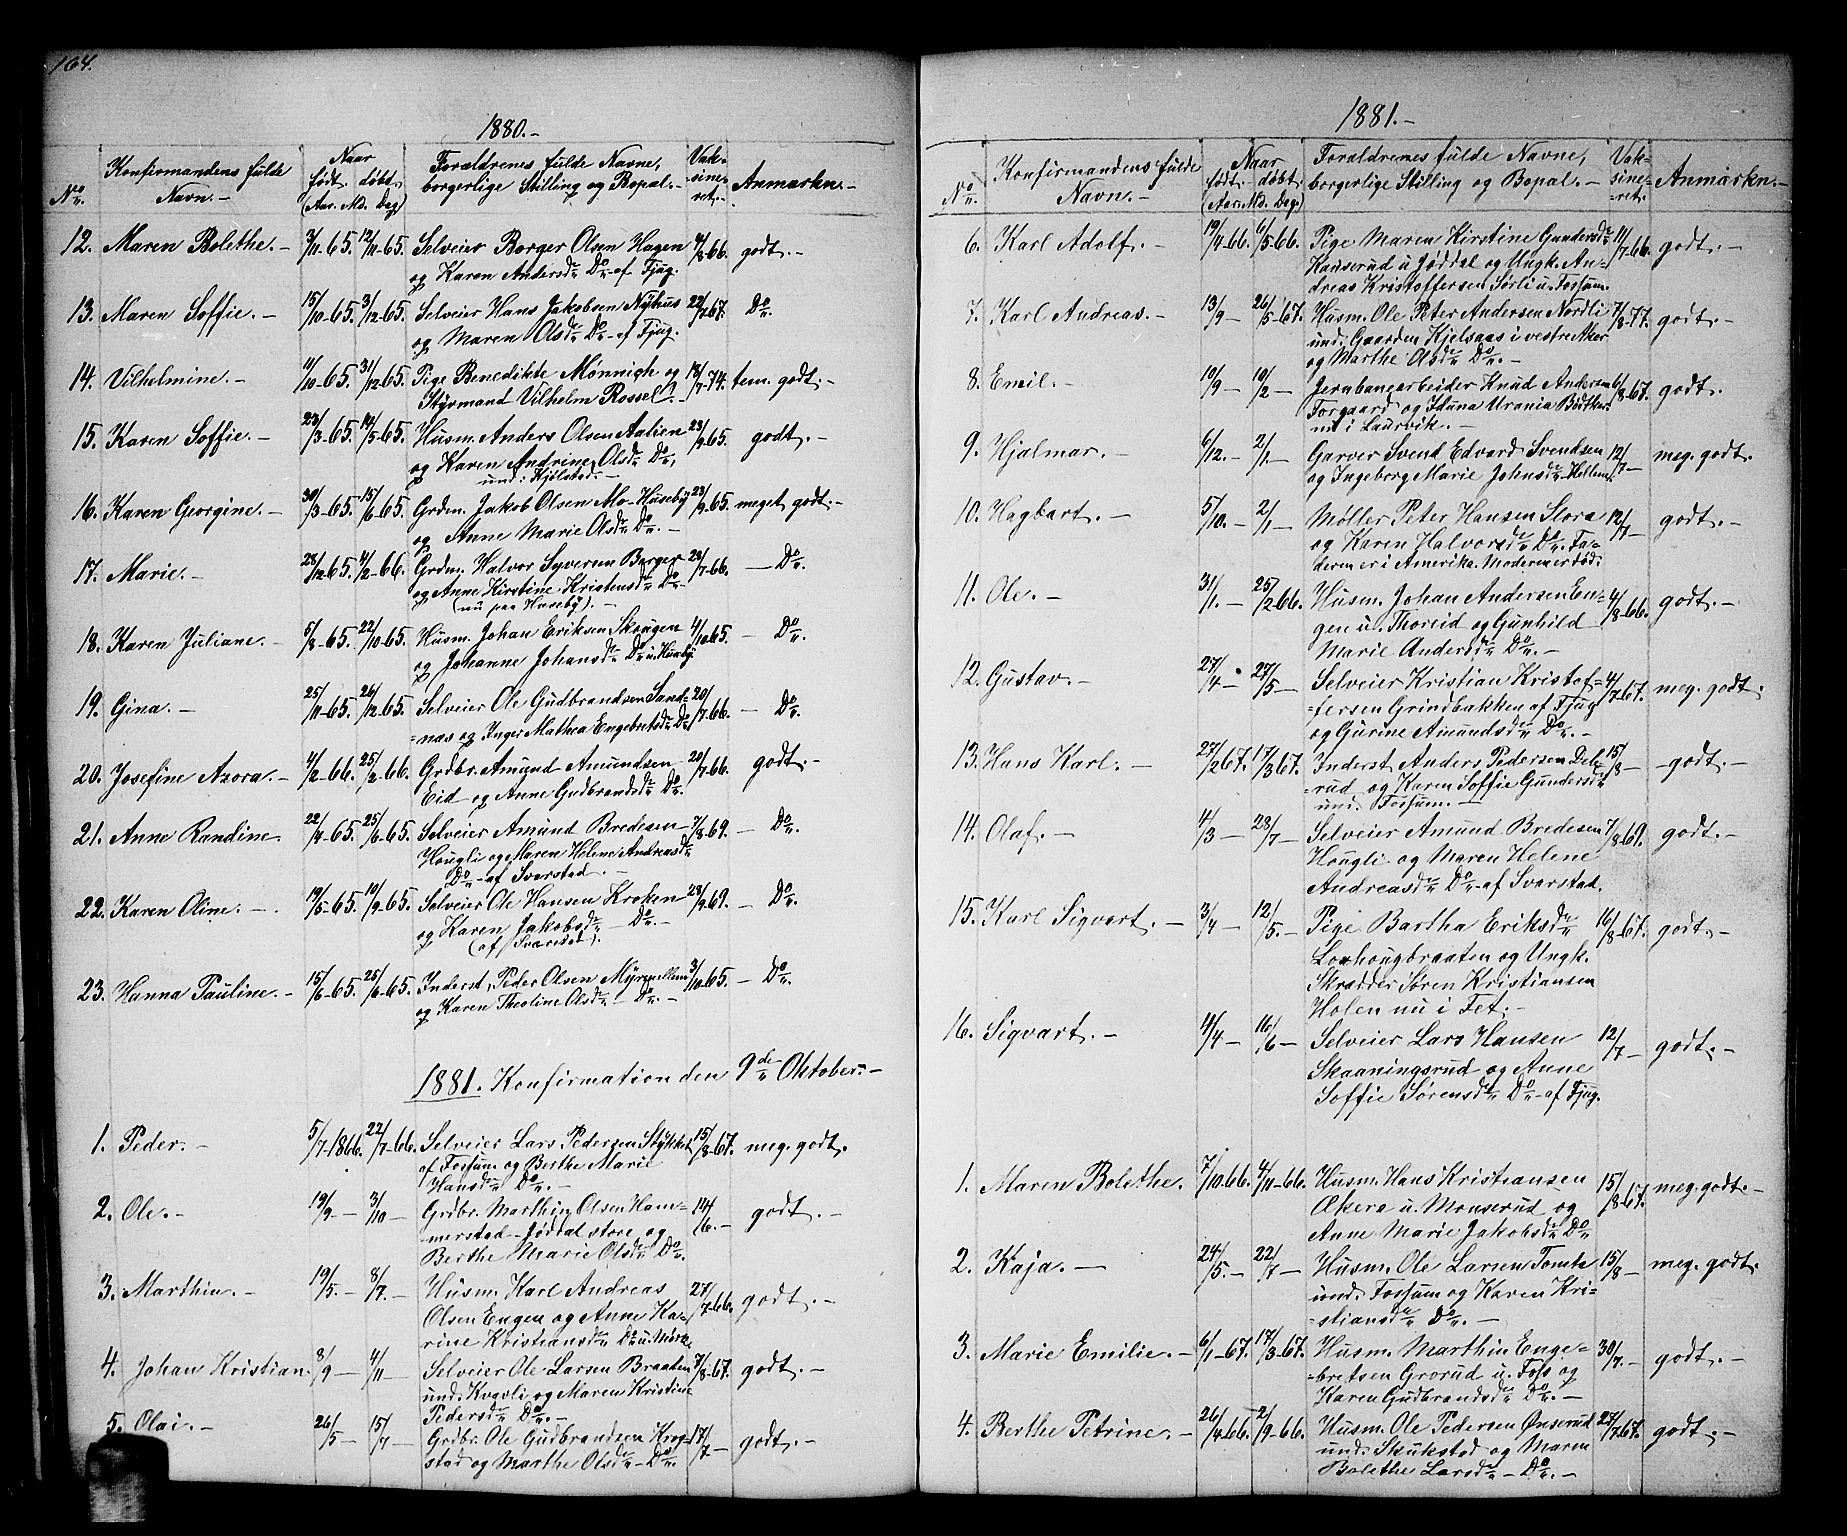 164.
1880.-
No.
Konfirmandens fulde
Navn.-
Naar
født. døbt.
(Aar. Md. Dag)
Forældrenes fulde Navne,
borgerlige Stilling og Bopæl.-
Vak-
sine-
ret.-
Anmærkn.-
12. Maren Bolethe.- 3/11-65. 12/11-65. Selveier Borger Olsen Hagen 4/8-66. godt.-
og Karen Andersdr Do - af Fjug.
13. Maren Soffie.- 15/10-65. 3/12-65. Selveier Hans Jakobsen Nyhus 22/7-67. Do
og Maren Olsdr Do - af Fjug.
14. Vilhelmine.- 11/10-65. 31/12-65. Pige Benedikte Mønnich og 18/7-74. tem. godt.-
Styrmand Vilhelm Rossel.-
15. Karen Soffie.- 23/3-65. 14/5-65. Husm. Anders Olsen Aalien 23/9-65. godt.-
og Karen Andrine Olsdr Do,
und. Kjølstad.-
16. Karen Georgine.- 30/3-65. 15/6-65. Grdm. Jakob Olsen Mo-Huseby 23/9-65. meget godt.-
og Anne Marie Olsdr Do.-
17. Marie.- 28/12-65. 4/2-66. Grdm. Halvor Syversen Berger 28/7-66. - Do
og Anne Kirstine Kristensdr Do
(nu paa Huseby).-
18. Karen Juliane.- 5/8-65. 22/10-65. Husm. Johan Eriksen Skougen 4/10-65. - Do
og Johanne Johansdr Do u. Huseby.
19. Gina.- 25/11-65. 26/12-65. Selveier Ole Gudbrandsen Sand- 20/7-66. - Do
=næs og Inger Mathea Engebretsdr Do
20. Josefine Azora.- 4/2-66. 25/2-66. Grdbr. Amund Amundsen 28/7-66. godt.-
Eid og Anne Gudbrandsdr Do.
21. Anne Randine 22/4-65. 25/6-65. Selveier Amund Bredesen 7/8-69. - Do
Hougli og Maren Helene Andreasdr
Do - af Svarstad.-
22. Karen Oline.- 19/5-65. 10/9-65. Selveier Ole Hansen Kroken 28/9-69. - Do
og Karen Jakobsdr - Do -
(af Svarstad).
23. Hanna Pauline.- 15/6-65. 25/6-65. Inderst, Peder Olsen Myren 3/10-65. - Do
og Karen Theoline Olsdr - Do -
1881. Konfirmation den 9de Oktober.-
1. Peder.- 5/7-1866. 22/7-66. Selveier Lars Pedersen Stykket 15/8-67. meg. godt.
af Fossum og Berthe Marie
Hansdr Do.-
2. Ole.- 19/9- 3/10- Grdbr. Marthin Olsen Ham- 14/6.- godt.-
merstad - Jøddal store og
Berthe Marie Olsdr Do.
3. Marthin.- 19/5.- 8/7.- Husm. Karl Andreas 27/7-66. godt.-
Olsen Engen og Anne Ka-
rine Kristiansdr Do u.
4. Johan Kristian. 8/9- 4/11- Selveier Ole Larsen Braaten 7/8-67. godt.-
und. Kvavli og Maren Kristine
Pedersdr Do.-
5. Olai.- 26/5- 15/7- Grdbr. Ole Gudbrandsen Krog- 17/7- godt.-
stad og Marthe Olsdr - Do.
1881.-
No.
Konfirmandens fulde
Navn.-
Naar
født. døbt.
(Aar. Md. Dag.)
Forældrenes fulde Navne,
borgerlige Stilling og Bopæl.-
Vak-
sine-
ret.
Anmærkn.-
6. Karl Adolf.- 19/4-66. 6/5-66. Pige Maren Kirstine Gundersdr 11/7-66. godt.-
Kauserud u Jøddal og Ungk. An-
dreas Kristoffersen Sørli u. Fossum.
7. Karl Andreas.- 13/9- 26/5-67. Husm. Ole Peter Andersen Nordli 7/8-77. godt.-
und. Gaarden Kjelsaas i vestre Aker
og Marthe Olsdr Do.-
8. Emil.- 19/9- 10/2- Jernbanearbeider Knud Andersen 6/8-67. godt.
Torgaard og Iduna Urania Bødtker
nu i Laurvik.-
9. Hjalmar.- 6/12.- 2/1.- Garver Svend Edvard Svendsen 12/7- meg. godt.
og Ingeborg Marie Johnsdr
10. Hagbart.- 5/10.- 2/1- Møller Peter Hansen Slora 12/7- godt.-
og Karen Halvorsdr Do. Fa-
deren er i Amerika. Moderen er død.
11. Ole.- 31/1.- 25/2-66. Husm. Johan Andersen En- 4/8-66. godt.-
gen u. Thoreid og Gunhild
Marie Andersdr Do.-
12. Gustav.- 27/4- 27/5- Selveier Kristian Kristof- 4/7-67. meg. godt.
=fersen Grindbakken af Fjug
og Gurine Amundsdr Do.-
13. Hans Karl.- 27/2-67. 17/3-67. Inderst Anders Pedersen Dele- 15/8- -godt.-
=rud og Karen Soffie Gundersdr
und. Fossum.-
14. Olaf.- 4/3- 28/7- Selveier Amund Bredesen 7/8-69. godt.-
Hougli og Maren Helene
Andreasdr Do - af Svarstad.
15. Karl Sigvart.- 3/4- 12/5.- Pige Bartha Eriksdr 16/8-67. godt.-
Louhougbraaten og Ungk.
Skrædder Søren Kristiansen
Holen nu i Fet.-
16. Sigvart.- 4/4- 16/6- Selveier Lars Hansen 12/7- godt.-
Skaaningsrud og Anne
Soffie Sørensdr Do - af Fjug.
1. Maren Bolethe. 7/10-66. 4/11-66. Husm. Hans Kristiansen 15/8-67. meg. godt.-
Økern u. Monserud og
Anne Marie Jakobsdr Do
2. Kaja.- 24/5.- 22/7- Husm. Ole Larsen Tomte 15/8- meg. godt.
und. Fossum og Karen Kri-
=stiansdr Do.-
3. Marie Emilie.- 6/1-67. 17/3-67. Husm. Marthin Enge- 30/7.- godt.-
=bretsen Grorud u. Foss og
Karen Gudbrandsdr Do.-
4. Berthe Petrine.- 26/4-66. 2/9-66. Husm. Ole Pedersen Ønserud 27/7-67. godt.-
und. Skukstad og Maren
Bolethe Larsdr - Do.-